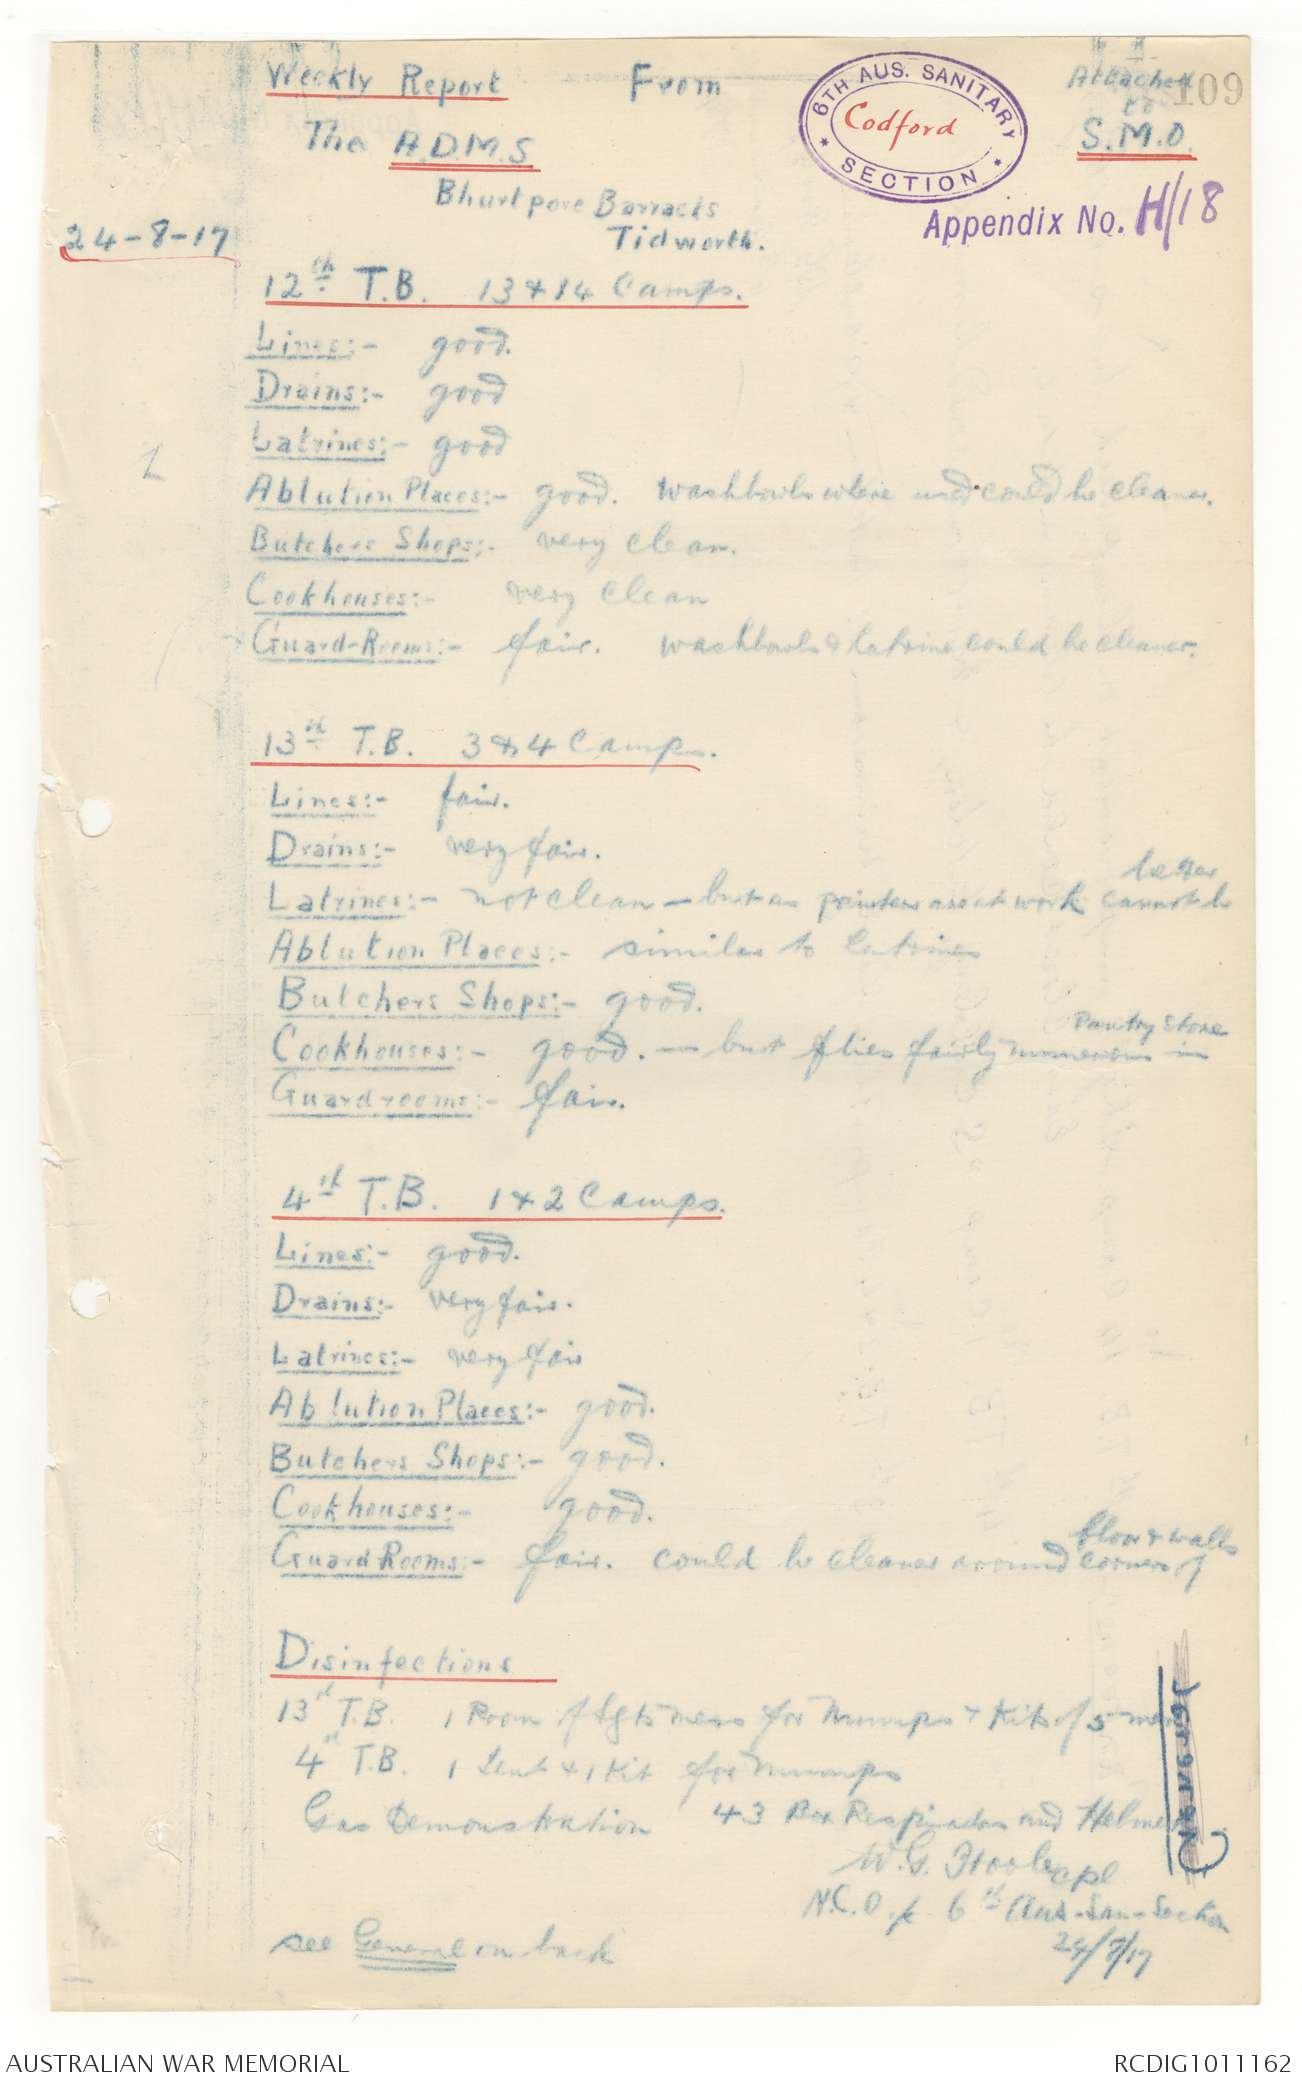 Weekly Report From
6TH AUS. SANITARY SECTION
Codford
Attached to
S.M.O.
109
The A.D.M.S
Bhurtpore Barracks
Tidworth.
Appendix No. H/18
24-8-17
12th T.B. 13 & 14 Camps.
Lines:- good.
Drains:- good
Latrines:- good
Ablution Places:- good. washbowls where used could be cleaner.
Butchers Shops:- very clean.
Cookhouses:- very clean
Guard-Rooms:- fair. washbowls & latrine could be cleaner.
13th T.B. 3 & 4 Camps.
Lines:- fair.
Drains:- very fair.
Latrines:- not clean - but as painters are at work cannot be better
Ablution Places:- similar to latrines
Butchers Shops:- good.
Cookhouses:- good. - but flies fairly numerous in Pantry Store
Guardrooms:- fair.
4th T.B. 1 & 2 Camps.
Lines:- good.
Drains:- very fair.
Latrines:- very fair
Ablution Places:- good.
Butchers Shops:- good.
Cookhouses:- good.
Guard Rooms:- fair. could be cleaner around corners of floor & walls
Disinfections
13th T.B. 1 Room of Sgts mess for Mumps & Kits of 5 men
4th T.B. 1 Tent & 1 Kit for Mumps
Gas Demonstration 43 Box Respirators and Helmets
W.G. Cpl
N.C.O. 6th Aus-San-Section
24/8/17
see General on back
AUSTRALIAN WAR MEMORIAL
RCDIG1011162